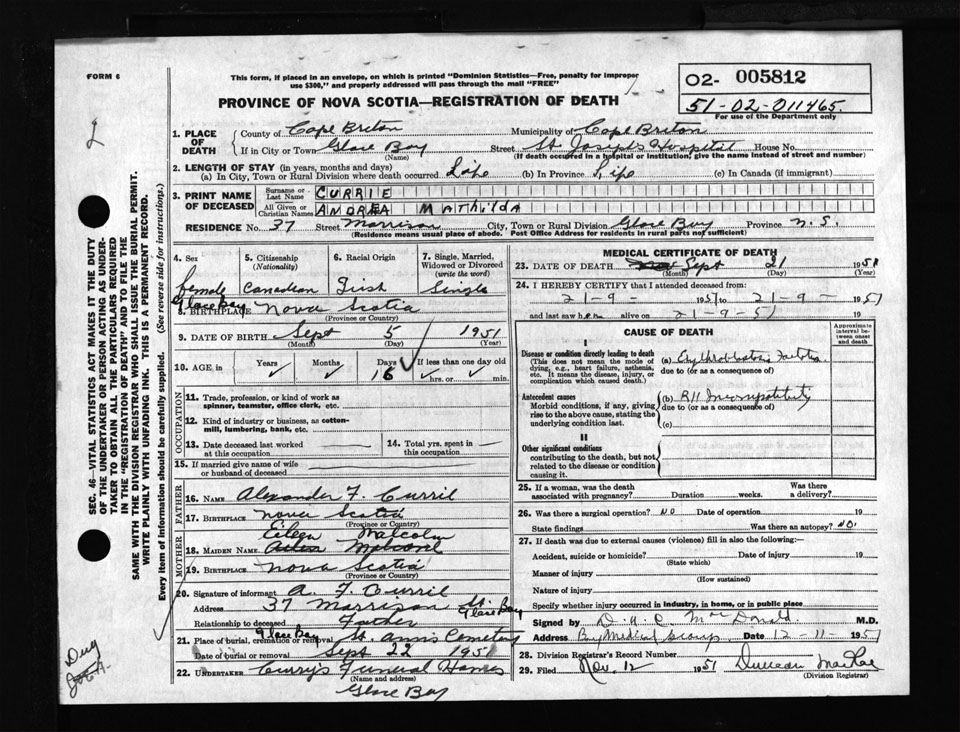 FORM 6
This form, if placed in an envelope, on which is printed "Dominion Statistics—Free, penalty for improper
use $300," and properly addressed will pass through the mail "FREE"
O2- 005812
51-02-011465.
For use of the Department only
PROVINCE OF NOVA SCOTIA—REGISTRATION OF DEATH
1. PLACE OF DEATH County of Cape Breton Municipality of Cape Breton
If in City or Town Glace Bay (Name) Street St. Joseph's Hospital House No.
(If death occurred in a hospital or institution, give the name instead of street and number)
2. LENGTH OF STAY (in years, months and days)
(a) In City, Town or Rural Division where death occurred Life (b) In Province Life (c) In Canada (if immigrant)
3. PRINT NAME OF DECEASED Surname or Last Name CURRIE
All Given or Christian Names ANDREA MATHILDA
RESIDENCE No. 37 Street Morrison City, Town or Rural Division Glace Bay Province N.S.
(Residence means usual place of abode. Post Office Address for residents in rural parts not sufficient)
4. Sex 5. Citizenship (Nationality) 6. Racial Origin 7. Single, Married, Widowed or Divorced (write the word)
female Canadian Irish Single
Glace Bay
8. BIRTHPLACE Nova Scotia
(Province or Country)
9. DATE OF BIRTH Sept 5 1951
(Month) (Day) (Year)
10. AGE in Years Months Days 6 If less than one day old hrs. or min.
OCCUPATION
11. Trade, profession, or kind of work as
spinner, teamster, office clerk, etc.
12. Kind of industry or business, as cotton-
mill, lumbering, bank, etc.
13. Date deceased last worked at this occupation 14. Total yrs. spent in this occupation
15. If married give name of wife
or husband of deceased
FATHER
16. NAME Alexander F. Currie
17. BIRTHPLACE Nova Scotia
(Province or Country)
MOTHER
Eileen Malcolm
18. MAIDEN NAME
19. BIRTHPLACE Nova Scotia
(Province or Country)
20. Signature of informant A. F. Currie
Address 37 Morrison St. Glace Bay
Relationship to deceased Father
21. Place of burial, cremation or removal Glace Bay St. Anns Cemetery
Date of burial or removal Sept 22 1951
22. UNDERTAKER Curry's Funeral Home
(Name and address)
Glace Bay
MEDICAL CERTIFICATE OF DEATH
23. DATE OF DEATH Sept 21 1951
(Month) (Day) (Year)
24. I HEREBY CERTIFY that I attended deceased from:
21-9- 1951 to 21-9- 1951
and last saw her alive on 21-9-51 19
CAUSE OF DEATH
Approximate interval between onset and death
I
Disease or condition directly leading to death
(This does not mean the mode of
dying, e.g., heart failure, asthenia,
etc. It means the disease, injury, or
complication which caused death.)
(a) Erythroblastosis Foetalis
due to (or as a consequence of)
Antecedent causes
Morbid conditions, if any, giving
rise to the above cause, stating the
underlying condition last.
(b) RH Incompatibility
due to (or as a consequence of)
(c)
II
Other significant conditions
contributing to the death, but not
related to the disease or condition
causing it.
25. If a woman, was the death
associated with pregnancy? Duration weeks. Was there a delivery?
26. Was there a surgical operation? NO Date of operation 19
State findings Was there an autopsy? NO.
27. If death was due to external causes (violence) fill in also the following:—
Accident, suicide or homicide? (State which) Date of injury 19
Manner of injury
(How sustained)
Nature of injury
Specify whether injury occurred in industry, in home, or in public place
Signed by D. A. C. MacDonald M.D.
Address Bay Medical Group Date 12-11-1951
28. Division Registrar's Record Number
29. Filed Nov. 12 1951 Duncan MacRae
(Division Registrar)
SEC. 46—VITAL STATISTICS ACT MAKES IT THE DUTY
OF THE UNDERTAKER OR PERSON ACTING AS UNDER-
TAKER TO OBTAIN ALL THE PARTICULARS REQUIRED
IN THE "REGISTRATION OF DEATH" AND TO FILE THE
SAME WITH THE DIVISION REGISTRAR WHO SHALL ISSUE THE BURIAL PERMIT.
WRITE PLAINLY WITH UNFADING INK. THIS IS A PERMANENT RECORD.
Every item of information should be carefully supplied. (See reverse side for instructions.)